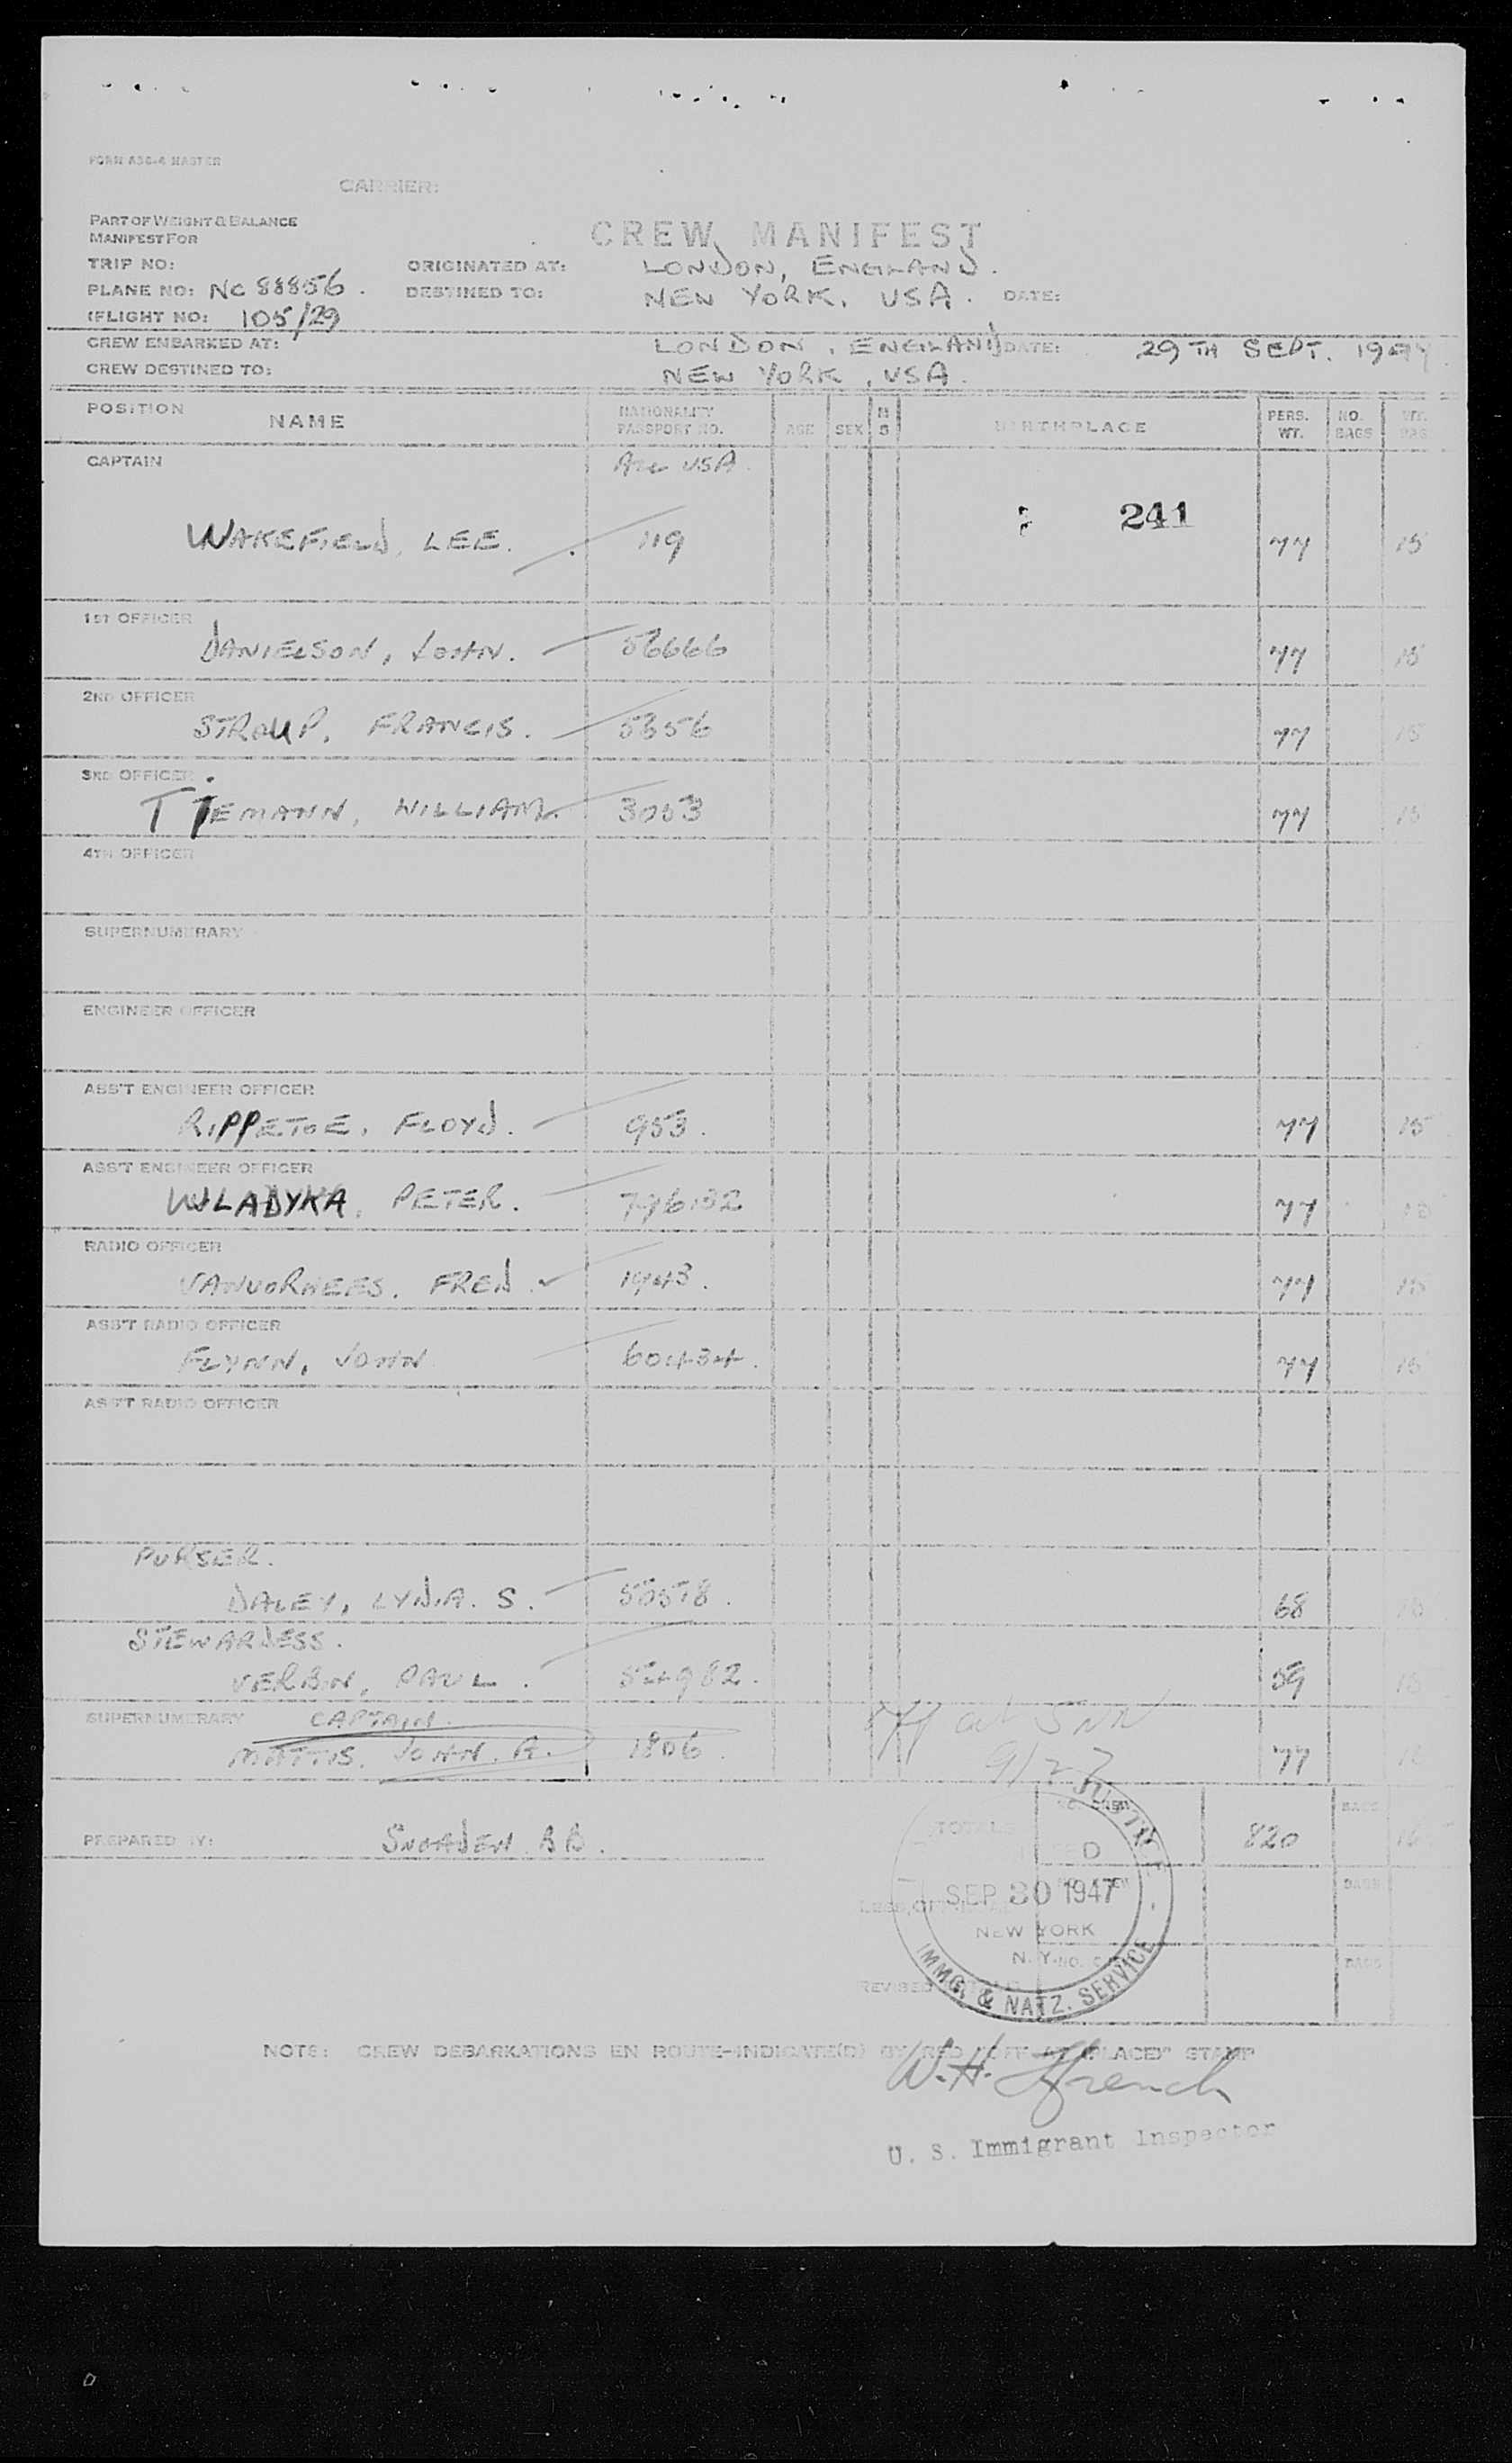 FORM A36-4 MASTER
CARRIER:
PART OF WEIGHT & BALANCE
MANIFEST FOR
CREW MANIFEST
TRIP NO: ORIGINATED AT: LONDON, ENGLAND.
PLANE NO: NC 88856. DESTINED TO: NEW YORK. USA. DATE:
FLIGHT NO: 105/29
CREW EMBARKED AT: LONDON, ENGLAND DATE: 29TH SEPT. 1947
CREW DESTINED TO: NEW YORK, USA.
POSITION NAME NATIONALITY PASSPORT NO. AGE SEX M S BIRTHPLACE PERS. WT. NO. BAGS WT. BAG
CAPTAIN ALL USA.
241
WAKEFIELD, LEE. 119 77 15
1ST OFFICER
DANIELSON, JOHN. 56666 77 15
2ND OFFICER
STROUP, FRANCIS. 5356 77 15
3RD OFFICER
TIEMANN, WILLIAM. 3053 77 15
4TH OFFICER
SUPERNUMERARY
ENGINEER OFFICER
ASS'T ENGINEER OFFICER
RIPPETOE, FLOYD. 953. 77 15
ASS'T ENGINEER OFFICER
WLADYKA, PETER. 77 15
RADIO OFFICER
VANVORHEES, FRED. 1943. 77 15
ASS'T RADIO OFFICER
FLYNN, JOHN 60434. 77 15
ASS'T RADIO OFFICER
PURSER.
DALEY, LYDIA. S. 50578. 68 15
STEWARDESS.
VERBIN, PAUL. 54982. 59 15
SUPERNUMERARY CAPTAIN.
MATTIS, JOHN. A. 1806. off at SNN 77 15
PREPARED BY: SNOADEN BB.
TOTALS NO. CREW 820 BAGS
JUSTICE
SEP 30 1947
NO. CREW BAGS
NEW YORK
N.Y. NO. BAGS
REVISED
IMMG. & NATZ. SERVICE
NOTE: CREW DEBARKATIONS EN ROUTE-INDICATE(D) BY RED "OFF AT (PLACE)" STAMP
W. H. Ffrench
U. S. Immigrant Inspector